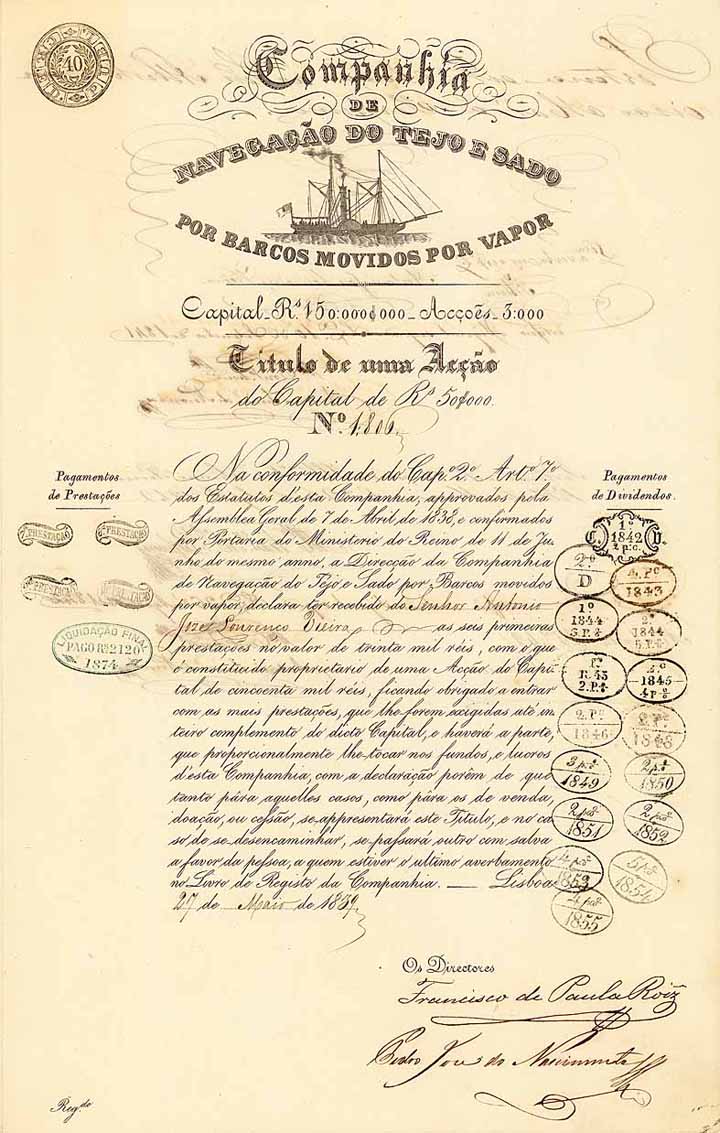 40
Companhia
DE
NAVEGAÇÃO DO TEJO E SADO
POR BARCOS MOVIDOS POR VAPOR
Capital_Rs. 150:000$000_Acções_3:000
Titulo de uma Acção
do Capital de Rs 50$000.
No. 1.806
Na conformidade do Cap.o 2.o Art.o 7.o
dos Estatutos d'esta Companhia, approvados pela
Assemblea Geral de 7 de Abril de 1838, e confirmados
por Portaria do Ministerio do Reino de 11 de Ju-
nho do mesmo anno, a Direcção da Companhia
de Navegação do Tejo e Sado por Barcos movidos
por vapor, declara ter recebido do Senhor Antonio
Joze Lourenço Vieira as seis primeiras
prestações no valor de trinta mil réis, com o que
é constituido proprietario de uma Acção do Capi-
tal de cincoenta mil réis, ficando obrigado a entrar
com as mais prestações, que lhe forem exigidas até in-
teiro complemento do dicto Capital, e haverá a parte,
que proporcionalmente lhe tocar nos fundos, e lucros
d'esta Companhia, com a declaração porèm de que
tanto pára aquelles casos, como pára os de venda,
doação, ou cessão, se appresentará este Titulo, e no ca-
so de se desencaminhar, se passará outro com salva
a favor da pessoa, a quem estiver o ultimo averbamento
no Livro de Registo da Companhia. — Lisboa
27 de Maio de 1839
Pagamentos
de Prestações
7.a PRESTAÇÃO
8.a PRESTAÇÃO
PRESTAÇÃO
PRESTAÇÃO
LIQUIDAÇÃO FINAL
PAGO RS 2120
1874
Pagamentos
de Dividendos.
C. 1.o U.
1842
2 p.c.
2.o
D
4. P.o
1843
1.o
1844
5 P.o
2.o
1844
5 P.o
1.o
2. P.o
1845
4 P.o
2. P.o
1846
2. P.o
1848
3 p.o
1849
2 p.o
1850
2 p.o
1851
2 p.o
1852
4 p.o
1853
3 p.o
1854
4 p.o
1855
Os Directores
Francisco de Paula Roiz
Pedro Joze do Nascimento
Reg.do